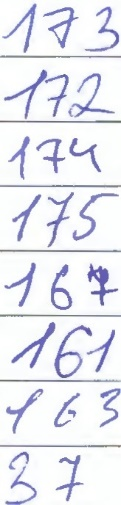 173
172
174
175
167
161
163
37